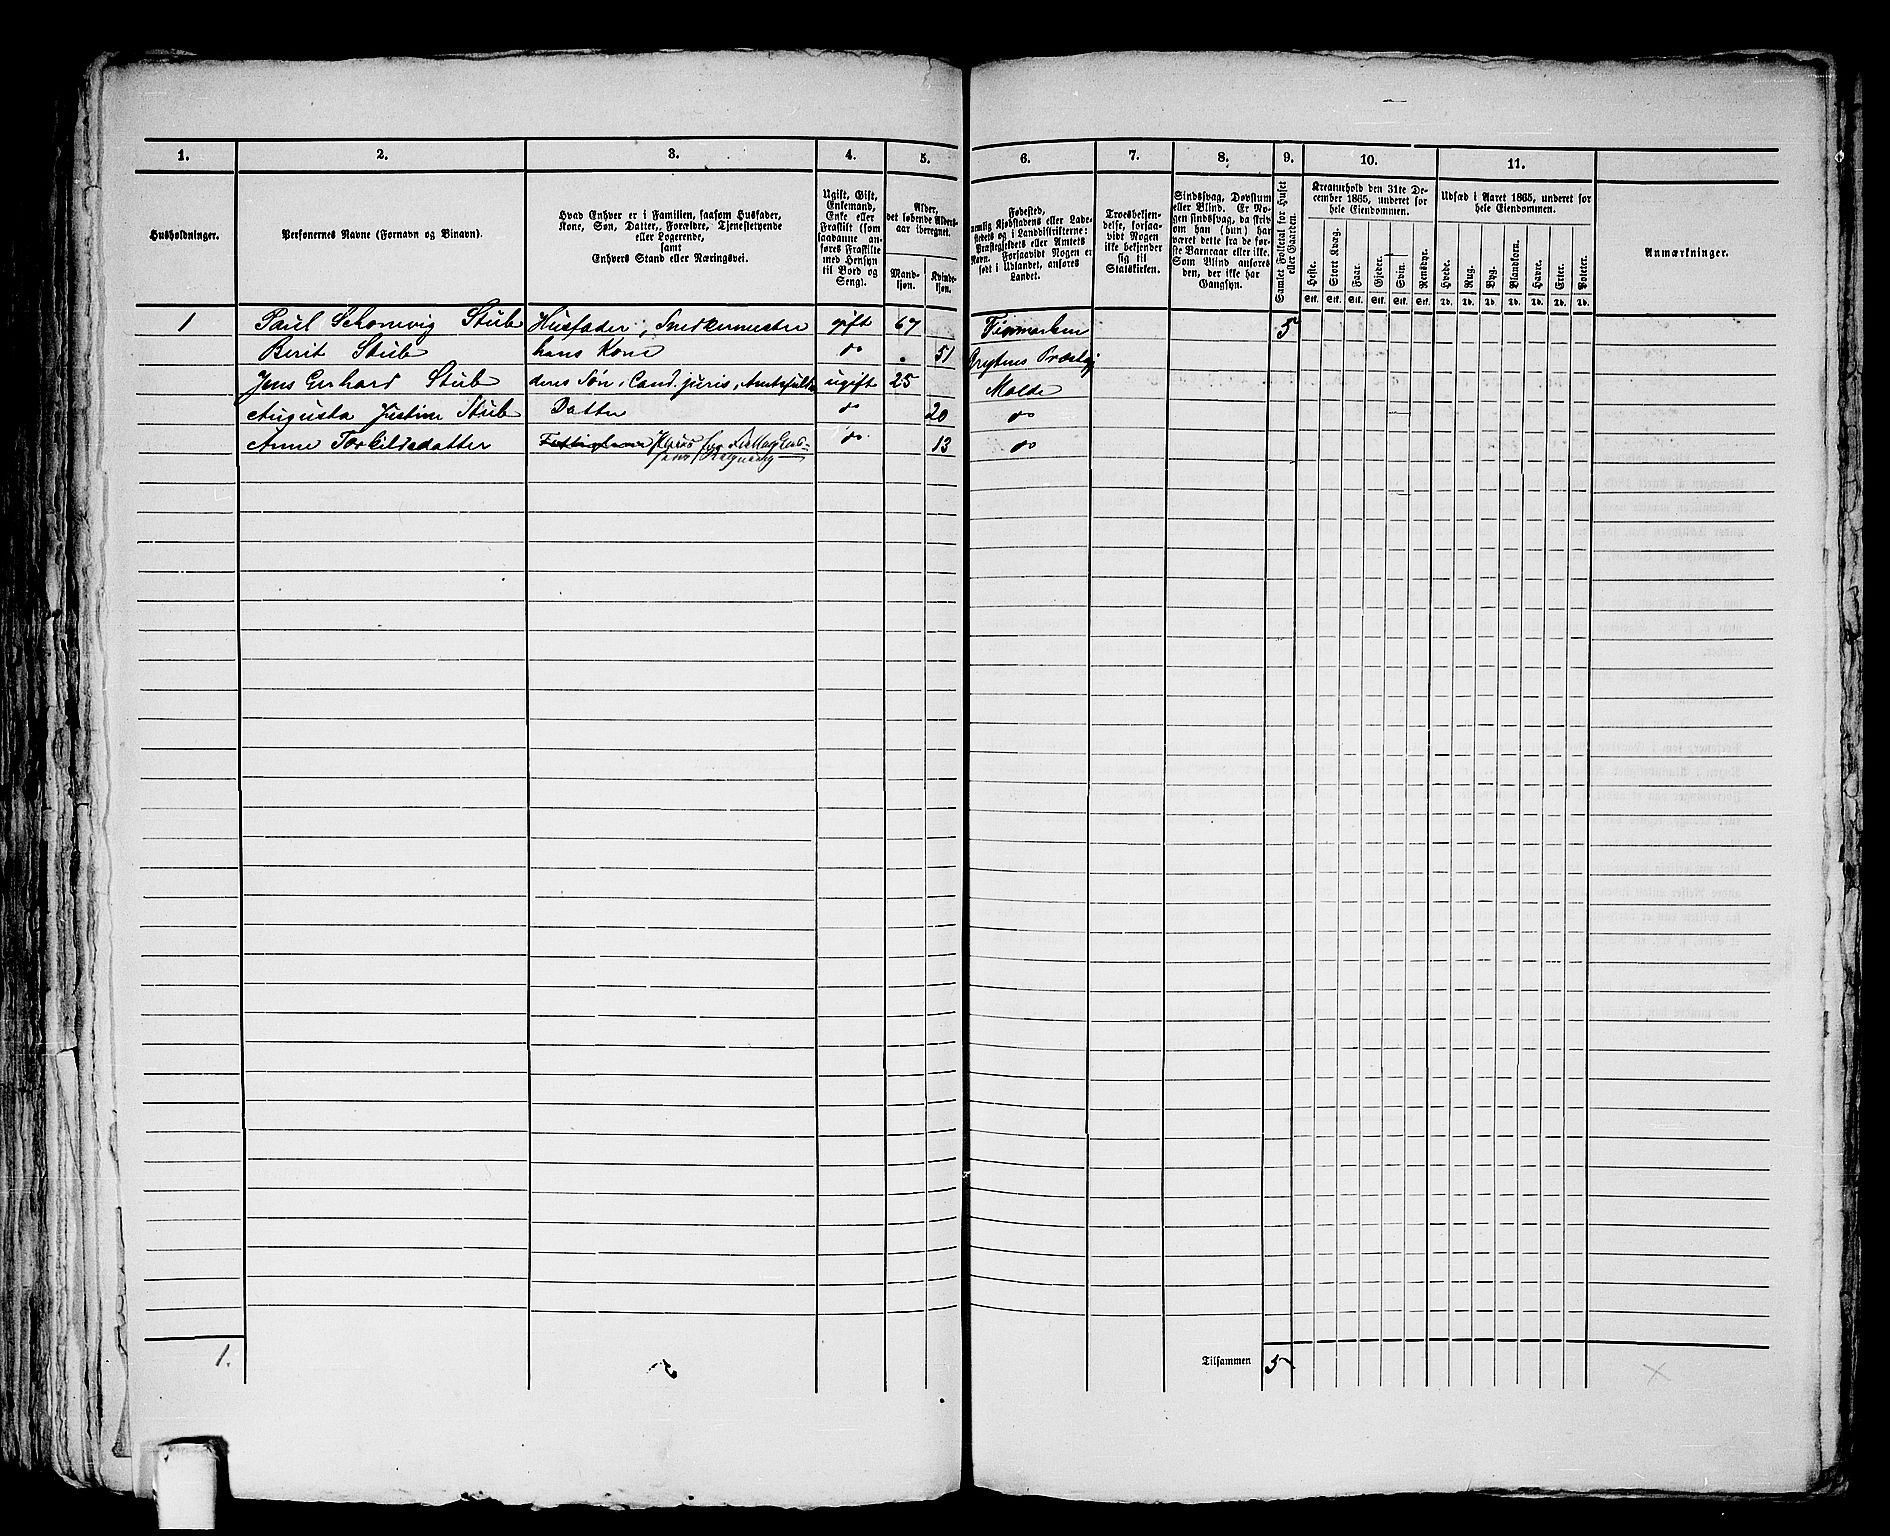 1. 2. 3. 4. 5. 6. 7. 8. 9. 10. 11.
Husholdninger.
Personernes Navne (Fornavn og Binavn).
Hvad Enhver er i Familien, saasom Husfader,
Kone, Søn, Datter, Forældre, Tjenestetyende
eller Logerende,
samt
Enhvers Stand eller Næringsvei.
Ugift, Gift,
Enkemand,
Enke eller
Fraskilt (som
saadanne an-
føres Fraskilte
med Hensyn
til Bord og
Seng).
Alder,
det løbende Alders-
aar iberegnet.
Mand-
kjøn.
Kvinde-
kjøn.
Fødested,
nemlig Kjøbstadens eller Lade-
stedets og i Landdistrikterne:
Præstegjeldets eller Amtets
Navn. Forsaavidt Nogen er
født i Udlandet, anføres
Landet.
Troesbekjen-
delse, forsaa-
vidt Nogen
ikke bekjender
sig til
Statskirken.
Sindssvag, Døvstum
eller Blind. Er No-
gen sindssvag, da skriv
om han (hun) har
været dette fra de før-
ste Barneaar eller ikke.
Som Blind anføres
den, der ikke har
Gangsyn.
Samlet Folketal for Huset
eller Gaarden.
Kreaturhold den 31te De-
cember 1865, underet for
hele Eiendommen.
Heste. Stort Kvæg. Faar. Gjeder. Svin. Rensdyr.
Stk. Stk. Stk. Stk. Stk. Stk.
Udsæd i Aaret 1865, underet for
hele Eiendommen.
Hvede. Rug. Byg. Blandkorn. Havre. Erter. Poteter.
Td. Td. Td. Td. Td. Td. Td.
Anmærkninger.
1 Paul Schonvig Stub Husfader, Snedkermester gift 67 Finmarken 5
Berit Stub hans Kone do 51 Grytens Præstegj
Jens Gerhard Stub deres Søn, Cand. juris, Amtsfuldm ugift 25 Molde
Augusta Justine Stub Datter do 20 do
Anne Torkildsdatter do 13 do
1.
Tilsammen 5